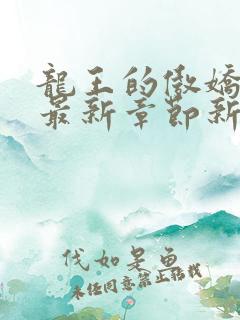 龍王的傲嬌
最新章節新
代如是鱼
未经同意禁止转载